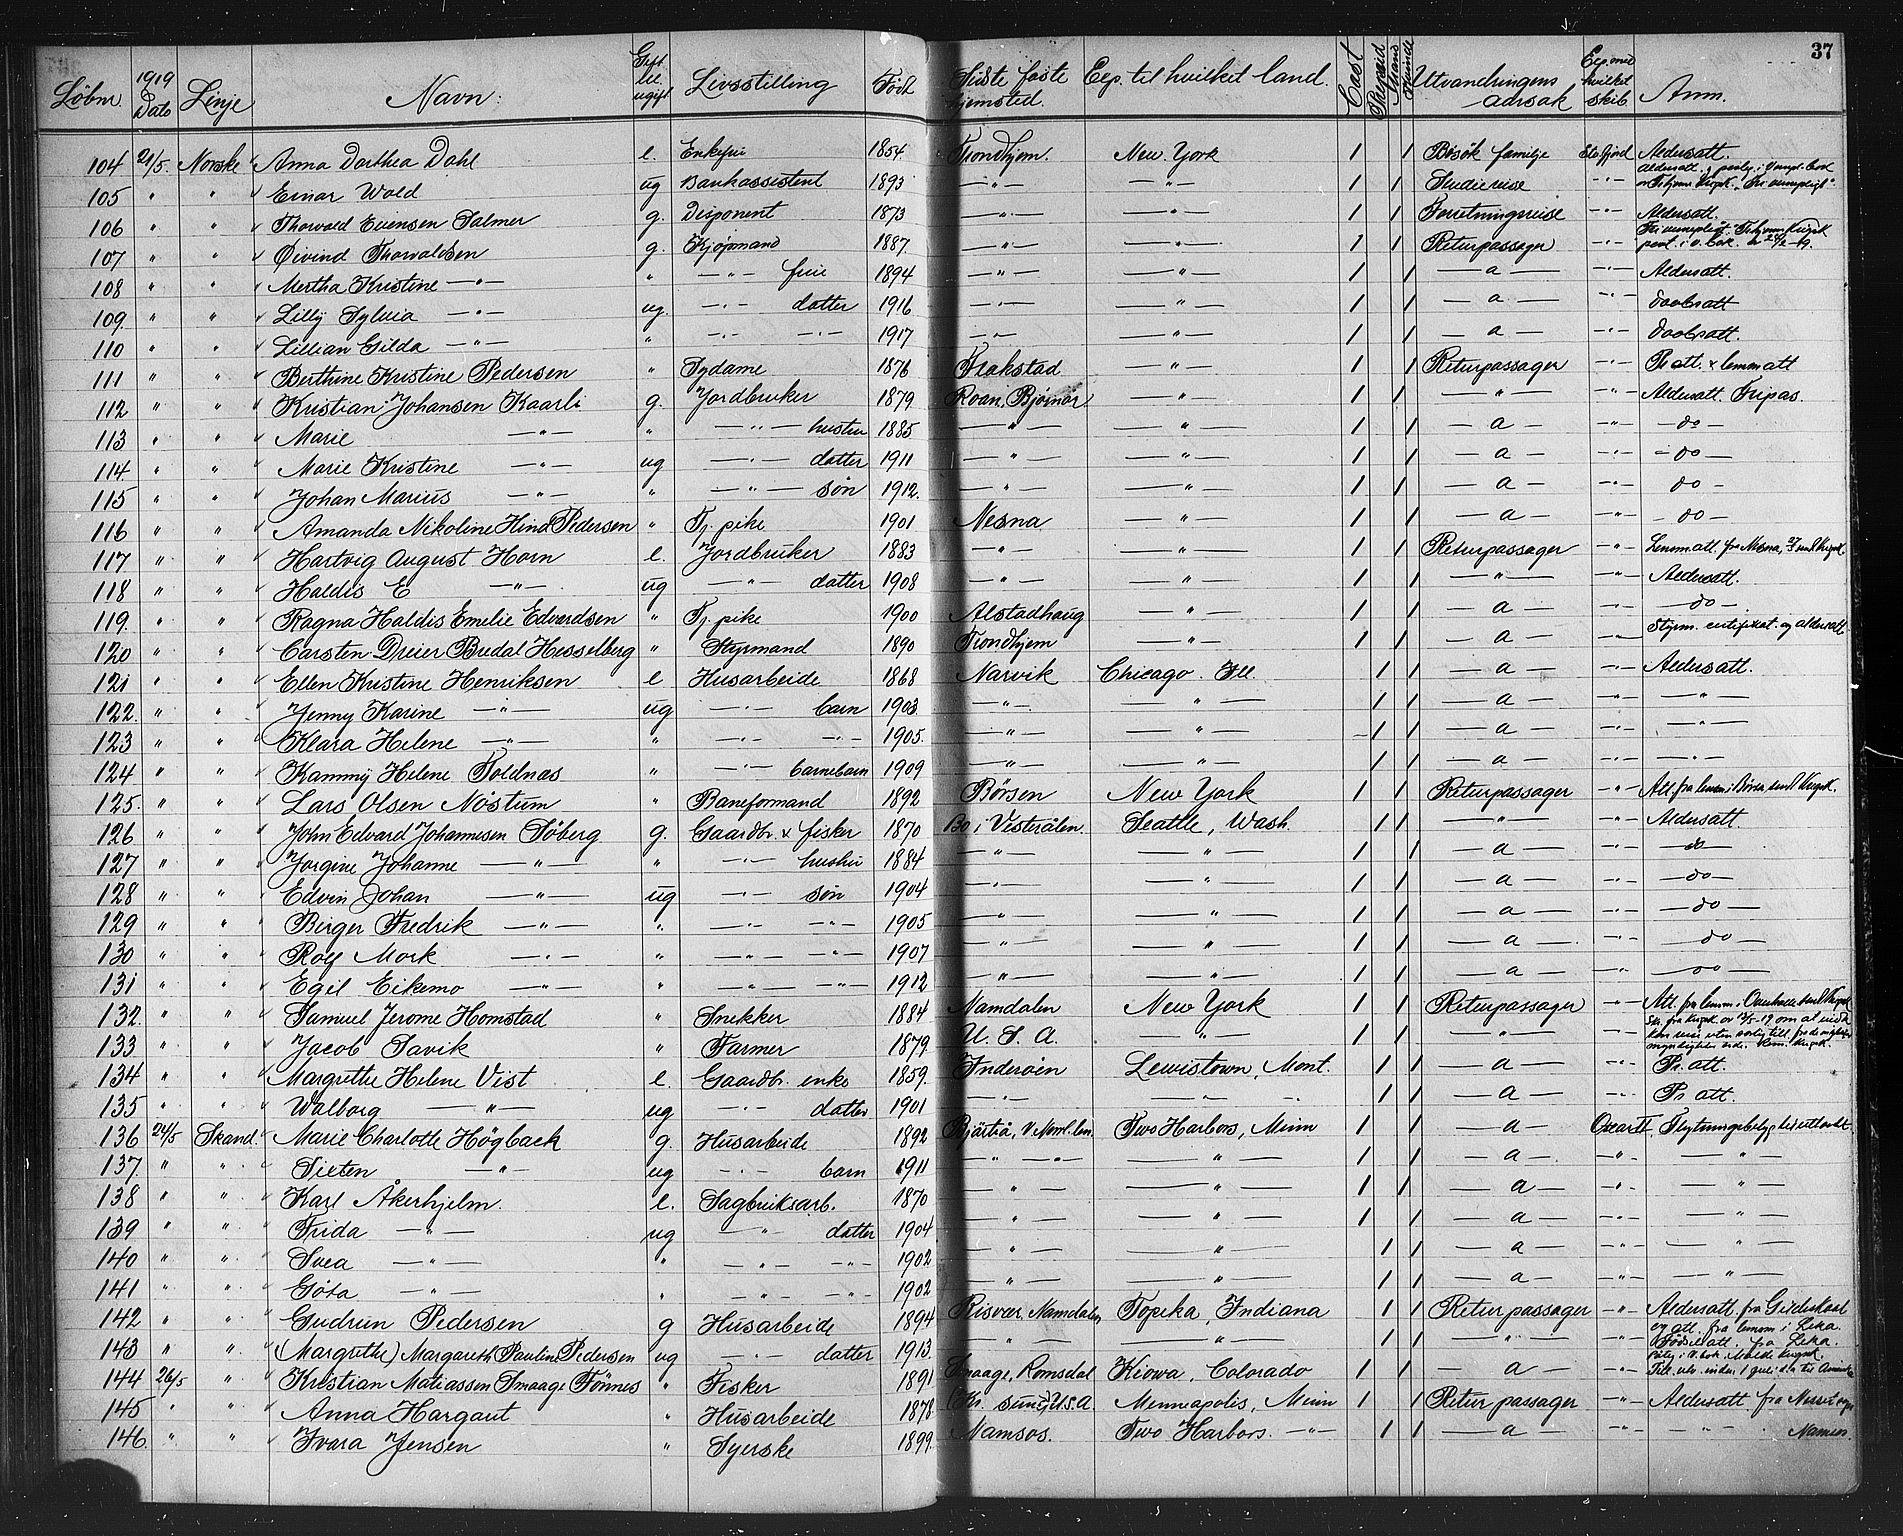 37
Löbnr. 1919 Dato Linje Navn: Gift el. ugift Livsstilling Født Sidste faste hjemsted. Exp. til hvilket land. Cast Prepaid Mand Kvinde Utvandringens aarsak Exp. med hvilket skib Anm.
104 21/5. Norske Anna Dorthea Dahl e. Enkefru 1854 Trondhjem. New York 1 1 Besök familje Stafjord Aldersatt.
105 " " Einar Wold ug Bankassistent 1893 — " — — " — 1 1 Studiereise - " -
106 " " Thorvald Salmer g. Disponent 1873 — " — — " — 1 1 Forretningsreise - " - Aldersatt.
107 " " Øivind Thorvaldsen g. Kjøpmand 1887 — " — — " — 1 1 Returpassager - " -
108 " " Mertha Kristine — " — " — " — frue 1894 — " — — " — 1 1 — a — - " - Aldersatt.
109 " " Lilly Sylvia — " — ug. — " — datter 1916 — " — — " — 1 1 — a — - " - daabsatt
110 " " Lillian Gilda — " — " — " — — " — 1917 — " — — " — 1 1 — a — - " - daabsatt.
111 " " Berthine Kristine Pedersen " Sydame 1876 Frakstad — " — 1 1 Returpassager - " - Pr att. & lensm att
112 " " Kristian Johansen Kaarli g. Jordbruker 1879 Roan, Bjørnør — " — 1 1 — " — - " - Aldersatt. Fripas.
113 " " Marie — " — " — " — hustru 1885 — " — — " — 1 1 — a — - " - — do —
114 " " Marie Kristine — " — ug — " — datter 1911 — " — — " — 1 1 — a — - " - — do —
115 " " Johan Marius — " — " — " — søn 1912. — " — — " — 1 1 — a — - " - do —
116 " " Amanda Nikoline Hind Pedersen " Tj. pike 1901 Nesna — " — 1 1 — a — - " - — do —
117 " " Hartvig August Horn e. Jordbruker 1883 — " — — " — 1 1 Returpassager - " - Lensm att. fra Nesna,
118 " " Haldis E — " — ug — " — datter 1908 — " — — " — 1 1 — " — - " - Aldersatt.
119. " " Ragna Haldis Emelie Edvardsen " Tj. pike 1900 Alstadhaug — " — 1 1 — a — - " - — do —
120 " " Carsten Dreier Bredal Hesselberg " Styrmand 1890 Trondhjem — " — 1 1 — a — - " - Styrm. certifikat. og aldersatt
121 " " Ellen Kristine Henriksen e Husarbeide 1868 Narvik Chicago. Ill 1 1 — a — - " - Aldersatt.
122. " " Jenny Karine — " — ug — " — barn 1903. — " — — " — 1 1 — a — - " - — " —
123 " " Klara Helene — " — " — " — — " — 1905. — " — — " — 1 1 — a — - " - — " —
124 " " Kammy Helene Toldnæs " — " — barnebarn 1909 — " — — " — 1 1 — a — - " - — " —
125. " " Lars Olsen Nøstum " Baneformand 1892 Børsen New York 1 1 Returpassager - " - Att. fra lensm i Børsen
126 " " John Edvard Johannesen Söberg g. Gaardbr. & fisker 1870 Bø i Vesterålen Seattle, Wash. 1 1 — " — - " - Aldersatt.
127 " " Jørgine Johanne — " — " — " — hustru 1884 — " — — " — 1 1 — a — - " - — do —
128 " " Edvin Johan — " — ug — " — søn 1904 — " — — " — 1 1 — a — - " - — do —
129 " " Birger Fredrik — " — " — " — — " — 1905 — " — — " — 1 1 — a — - " - — do —
130 " " Rolf Mork — " — " — " — — " — 1907 — " — — " — 1 1 — a — - " - — do —
131 " " Egil Eikemo — " — " — " — — " — 1912 — " — — " — 1 1 — a — - " - — do —
132. " " Samuel Jerome Homstad " Snekker 1884 Namdalen New York 1 1 Returpassager - " -
133 " " Jacob Savik " Farmer 1879. U. S. A. — " — 1 1 — " — - " -
134 " " Margrethe Helene Vist e. Gaardbr. enke 1859. Inderøin Lewistown, Mont. 1 1 — a — - " - Pr. att.
135 " " Walborg — " — ug — " — datter 1901 — " — — " — 1 1 — a — - " - Pr att.
136 24/5 Skand. Marie Charlotte Högback g. Husarbeide 1892 Bjärtrå, V. Norrl. län. Two Harbors, Minn 1 1 — a — Oscar II. Flytningsbetyg
137. " " Sixten — " — ug — " — barn 1911 — " — — " — 1 1 — a — - " - — " —
138 " " Karl Åkerhjelm. e. Sagbruksarb. 1870 — " — — " — 1 1 — a — - " - — " —
139 " " Frida — " — ug — " — datter 1904 — " — — " — 1 1 — a — - " - — " —
140 " " Svea — " — " — " — — " — 1902 — " — — " — 1 1 — a — - " - — " —
141 " " Göta — " — " — " — — " — 1902 — " — — " — 1 1 — a — - " - — " —
142 " " Gudrun Pedersen g Husarbeide 1894 Risvær, Namdalen Topeka, Indiana 1 1 Returpassager - " - Aldersatt. fra Gildeskaal og att. fra lensm i Leka.
143 " " (Margrethe) Margareth Pauline Pedersen ug — " — datter 1913 — " — — " — 1 1 — " — - " - Fødselatt. fra Leka.
144 26/5 " Kristian Matiassen Smaage Tønnes " Fisker 1891 Smaage, Romsdal Kiowa, Colorado 1 1 — a — - " -
145 " " Anna Hargaut " Husarbeide 1878 (Kr. sund) U.S.A. Minneapolis, Minn 1 1 Returpassager - " - Aldersatt. fra
146. " " Ivara Jensen " Syerske 1899. Namsos. Two Harbors. — " — 1 1 — a — - " - — " — Namsos.